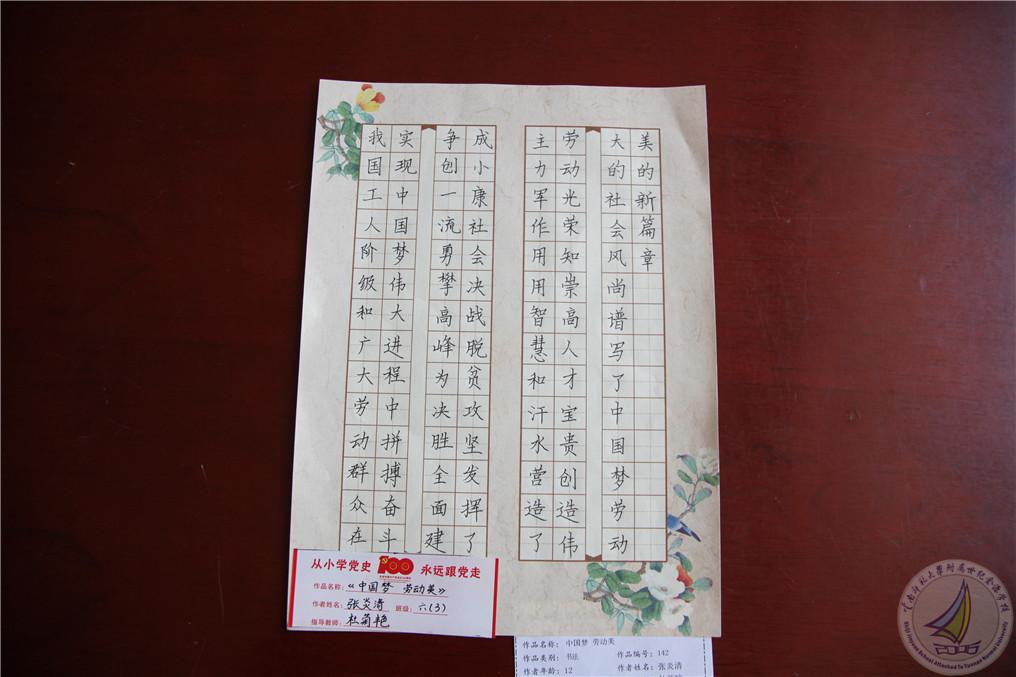 我国工人阶级和广大劳动群众在
实现中国梦伟大进程中拼搏奋斗
争创一流勇攀高峰为决胜全面建
成小康社会决战脱贫攻坚发挥了
主力军作用用智慧和汗水营造了
劳动光荣知崇高人才宝贵创造伟
大的社会风尚谱写了中国梦劳动
美的新篇章
从小学党史 100 永远跟党走
作品名称：《中国梦 劳动美》
作者姓名：张炎清 班级：六(3)
指导教师：杜菊艳
作品名称：中国梦 劳动美
作品类别：书法 作品编号：142
作者年龄：12 作者姓名：张炎清
云南师范大學附属世纪金源學校
Shiji Jinyuan School Attached To Yunnan Normal University